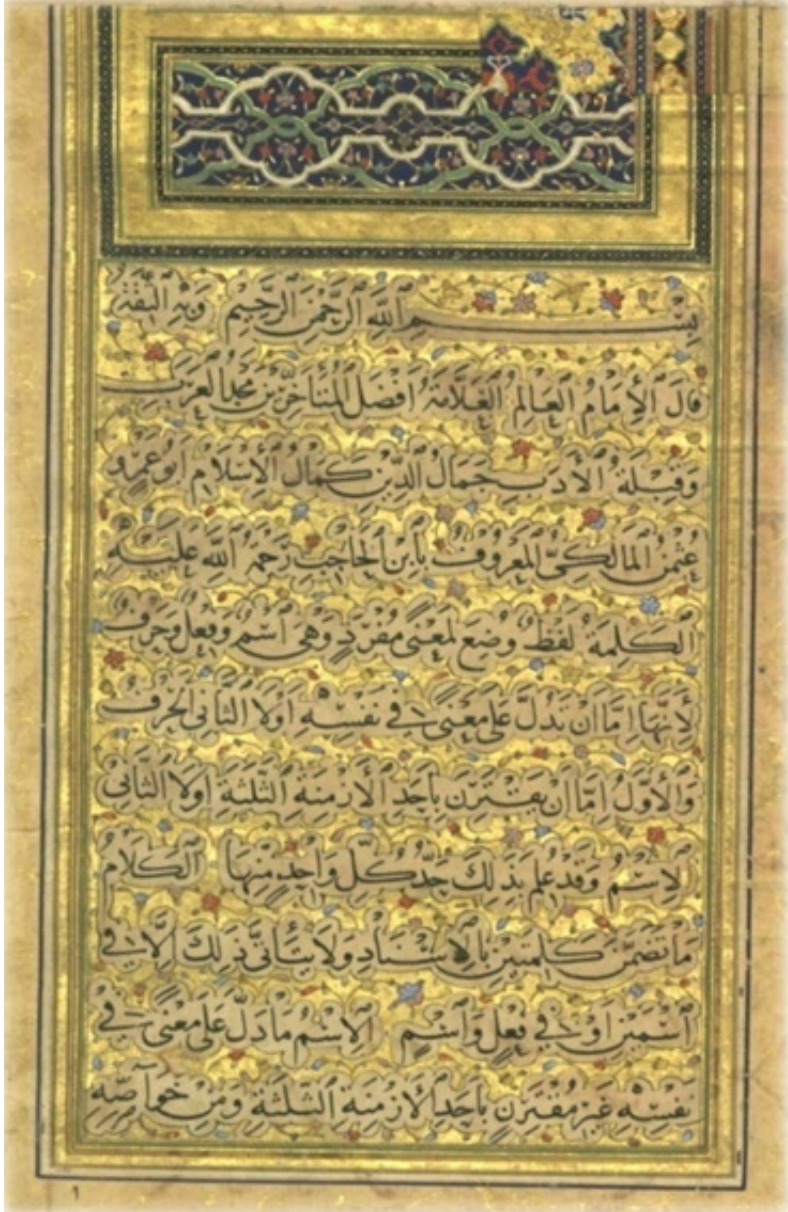 بِسْمِ ٱللَّهِ ٱلرَّحْمٰنِ ٱلرَّحِيمِ وَبِهِ ٱلثِّقَةُ
قَالَ ٱلْإِمَامُ ٱلْعَالِمُ ٱلْعَلَّامَةُ أَفْضَلُ ٱلْمُتَأَخِّرِينَ مَجْدُ ٱلْعَرَبِ
وَقِبْلَةُ ٱلْأَدَبِ جَمَالُ ٱلدِّينِ كَمَالُ ٱلْإِسْلَامِ أَبُو عَمْرٍو
عُثْمٰنُ ٱلْمَالِكِىُّ ٱلْمَعْرُوفُ بِٱبْنِ ٱلْحَاجِبِ رَحْمَةُ ٱللَّهِ عَلَيْهِ
ٱلْكَلِمَةُ لَفْظٌ وُضِعَ لِمَعْنًى مُفْرَدٍ وَهِىَ ٱسْمٌ وَفِعْلٌ وَحَرْفٌ
لِأَنَّهَا إِمَّا أَنْ تَدُلَّ عَلَى مَعْنًى فِى نَفْسِهِ أَوْ لَا ٱلثَّانِى ٱلْحَرْفُ
وَٱلْأَوَّلُ إِمَّا أَنْ يَقْتَرِنَ بِأَحَدِ ٱلْأَزْمِنَةِ ٱلثَّلٰثَةِ أَوْ لَا ٱلثَّانِى
ٱلْاِسْمُ وَقَدْ عُلِمَ بِذٰلِكَ حَدُّ كُلِّ وَاحِدٍ مِنْهَا ٱلْكَلَامُ
مَا تَضَمَّنَ كَلِمَتَيْنِ بِالْإِسْنَادِ وَلَا يَتَأَتَّى ذٰلِكَ إِلَّا فِى
ٱسْمَيْنِ أَوْ فِى فِعْلٍ وَٱسْمٍ ٱلْاِسْمُ مَا دَلَّ عَلَى مَعْنًى فِى
نَفْسِهِ غَيْرِ مُقْتَرِنٍ بِأَحَدِ ٱلْأَزْمِنَةِ ٱلثَّلٰثَةِ وَمِنْ خَوَاصِّهِ
١